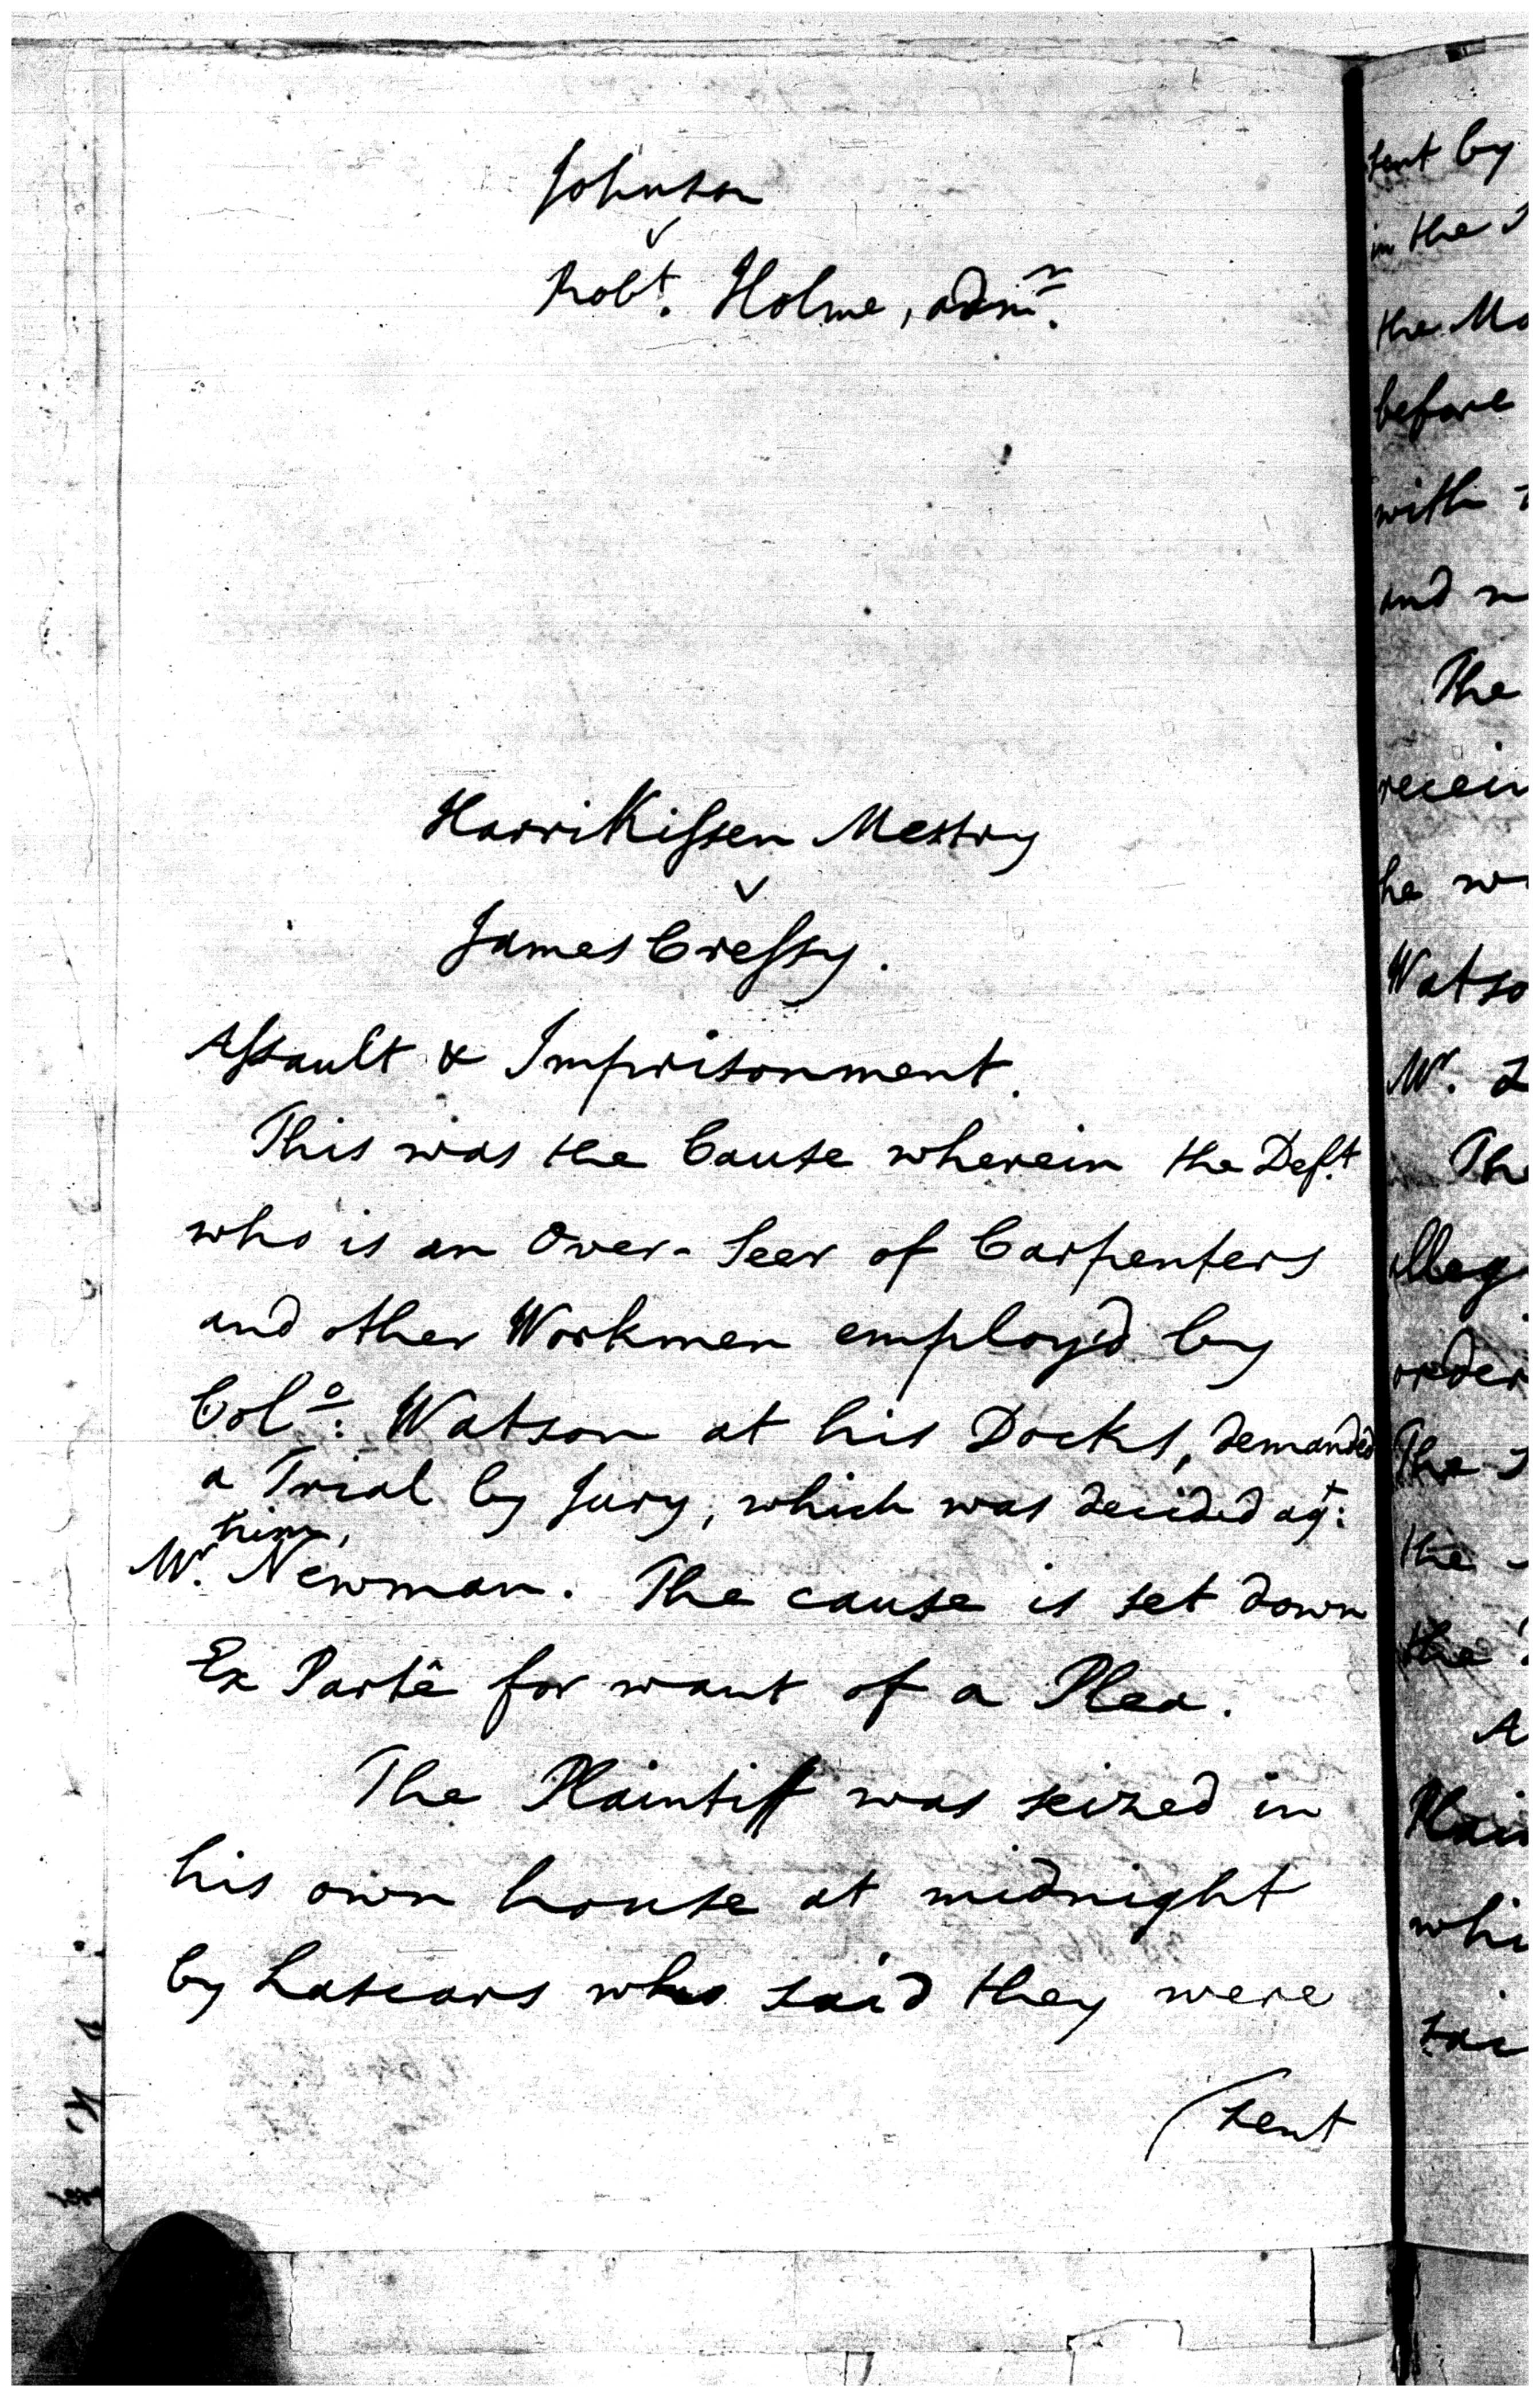 Johnson
v
Robt. Holme, admr.
HarriKissen Mestry
v
James Cressy.
Assault & Imprisonment.
This was the Cause wherein the Deft.
who is an Over-Seer of Carpenters
and other Workmen employ'd by
Colo: Watson at his Docks, demanded
a Trial by Jury, which was decided agt:
him,
Mr. Newman. The cause is set down
Ex Partê for want of a Plea.
The Plaintiff was seized in
his own house at midnight
by Lascars who said they were
(sent
sent by
in the
the Mo
before
with
and
The
receiv
he
Watso
Mr.
Th
illeg
order
The
the
the
A
Plain
whi
sai